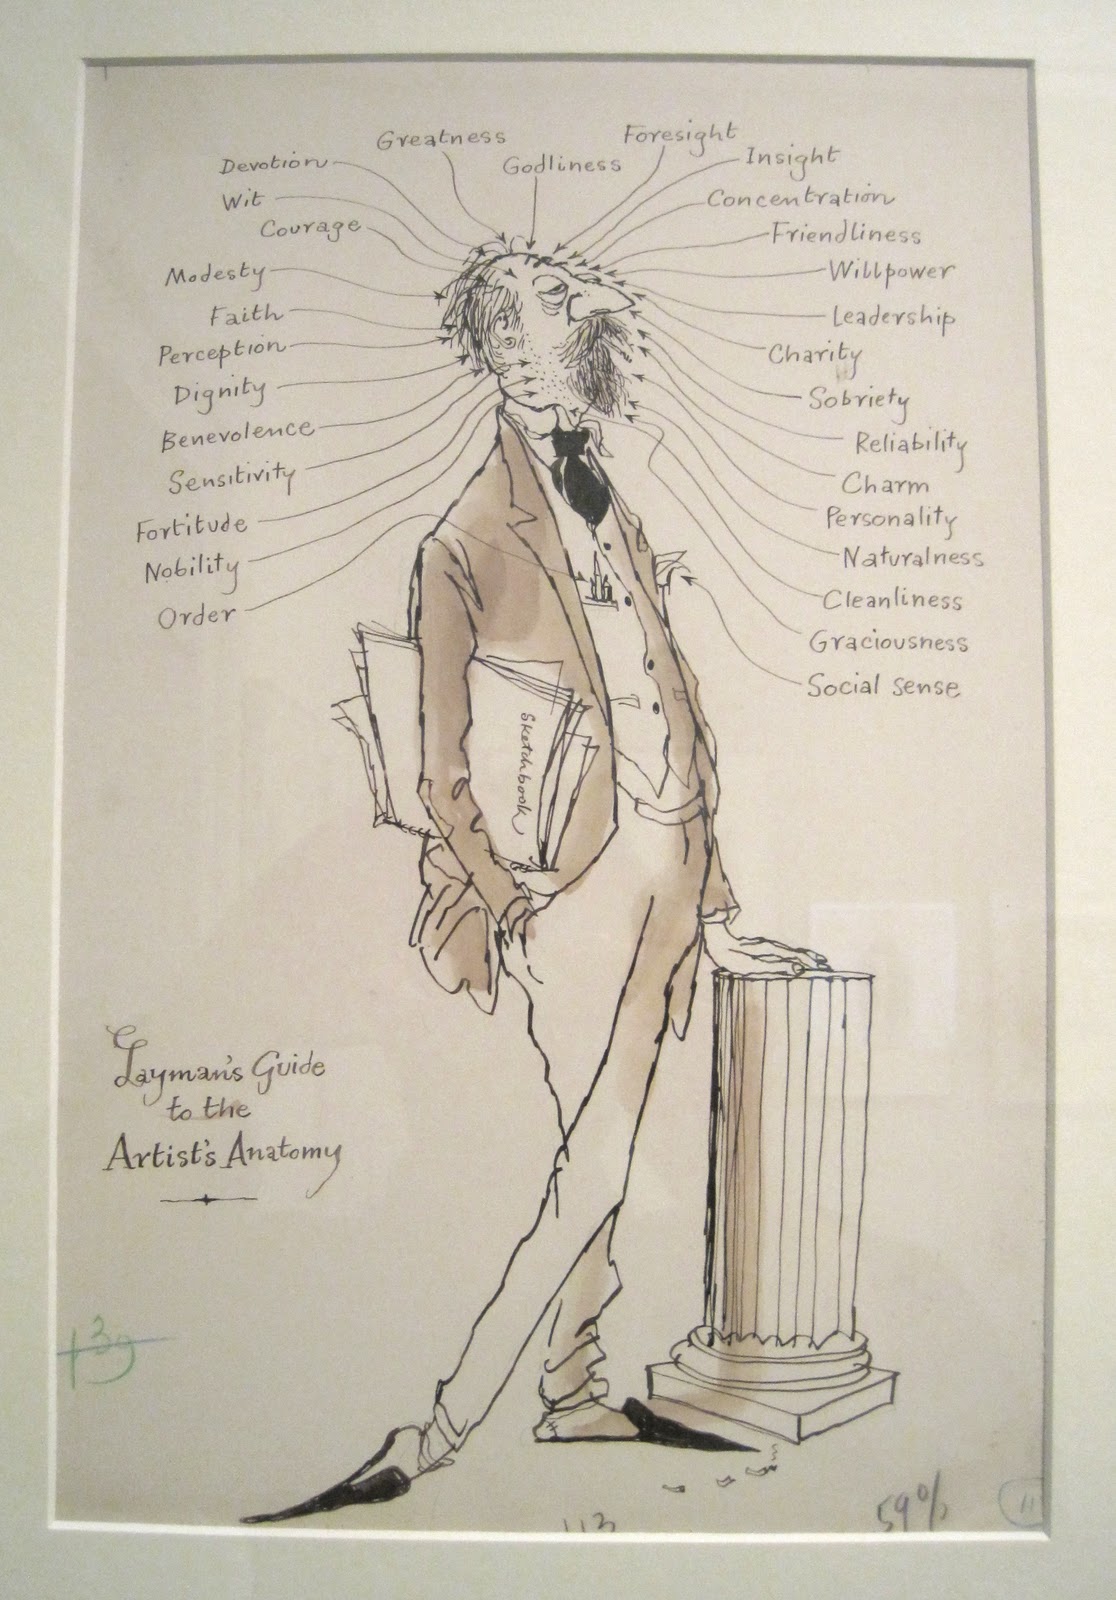 Greatness
Foresight
Devotion
Godliness
Insight
Wit
Concentration
Courage
Friendliness
Modesty
Willpower
Faith
Leadership
Perception
Charity
Dignity
Sobriety
Benevolence
Reliability
Sensitivity
Charm
Fortitude
Personality
Nobility
Naturalness
Order
Cleanliness
Graciousness
Social sense
Sketchbook
Layman's Guide
to the
Artist's Anatomy
139
59%
113
11